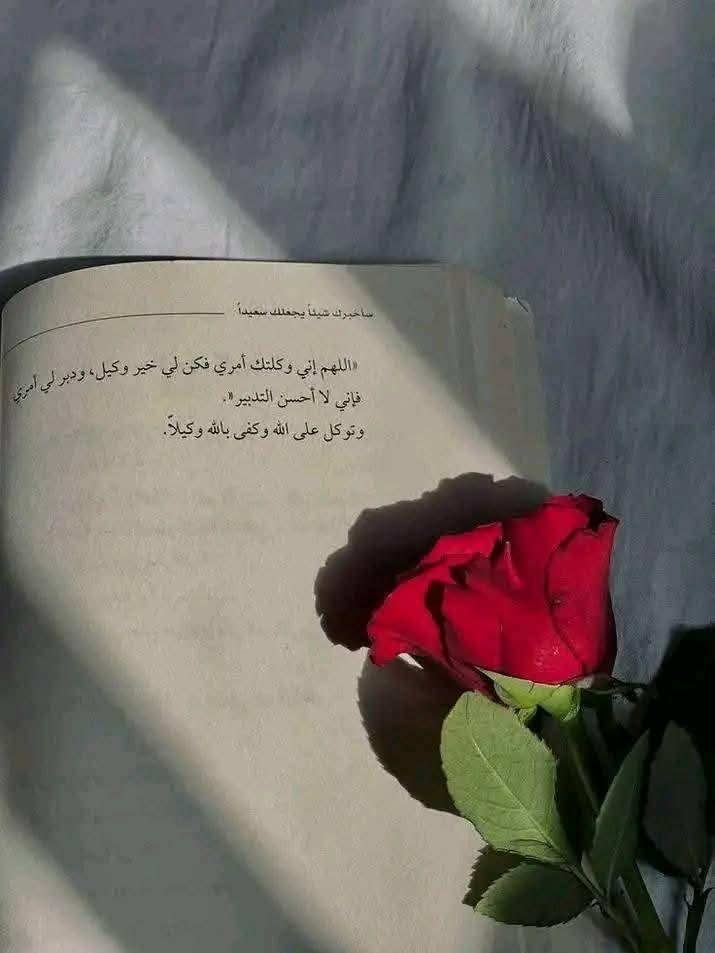 سأخبرك شيئاً يجعلك سعيداً
«اللهم إني وكلتك أمري فكن لي خير وكيل، ودبر لي أمري
فإني لا أحسن التدبير».
وتوكل على الله وكفى بالله وكيلاً.